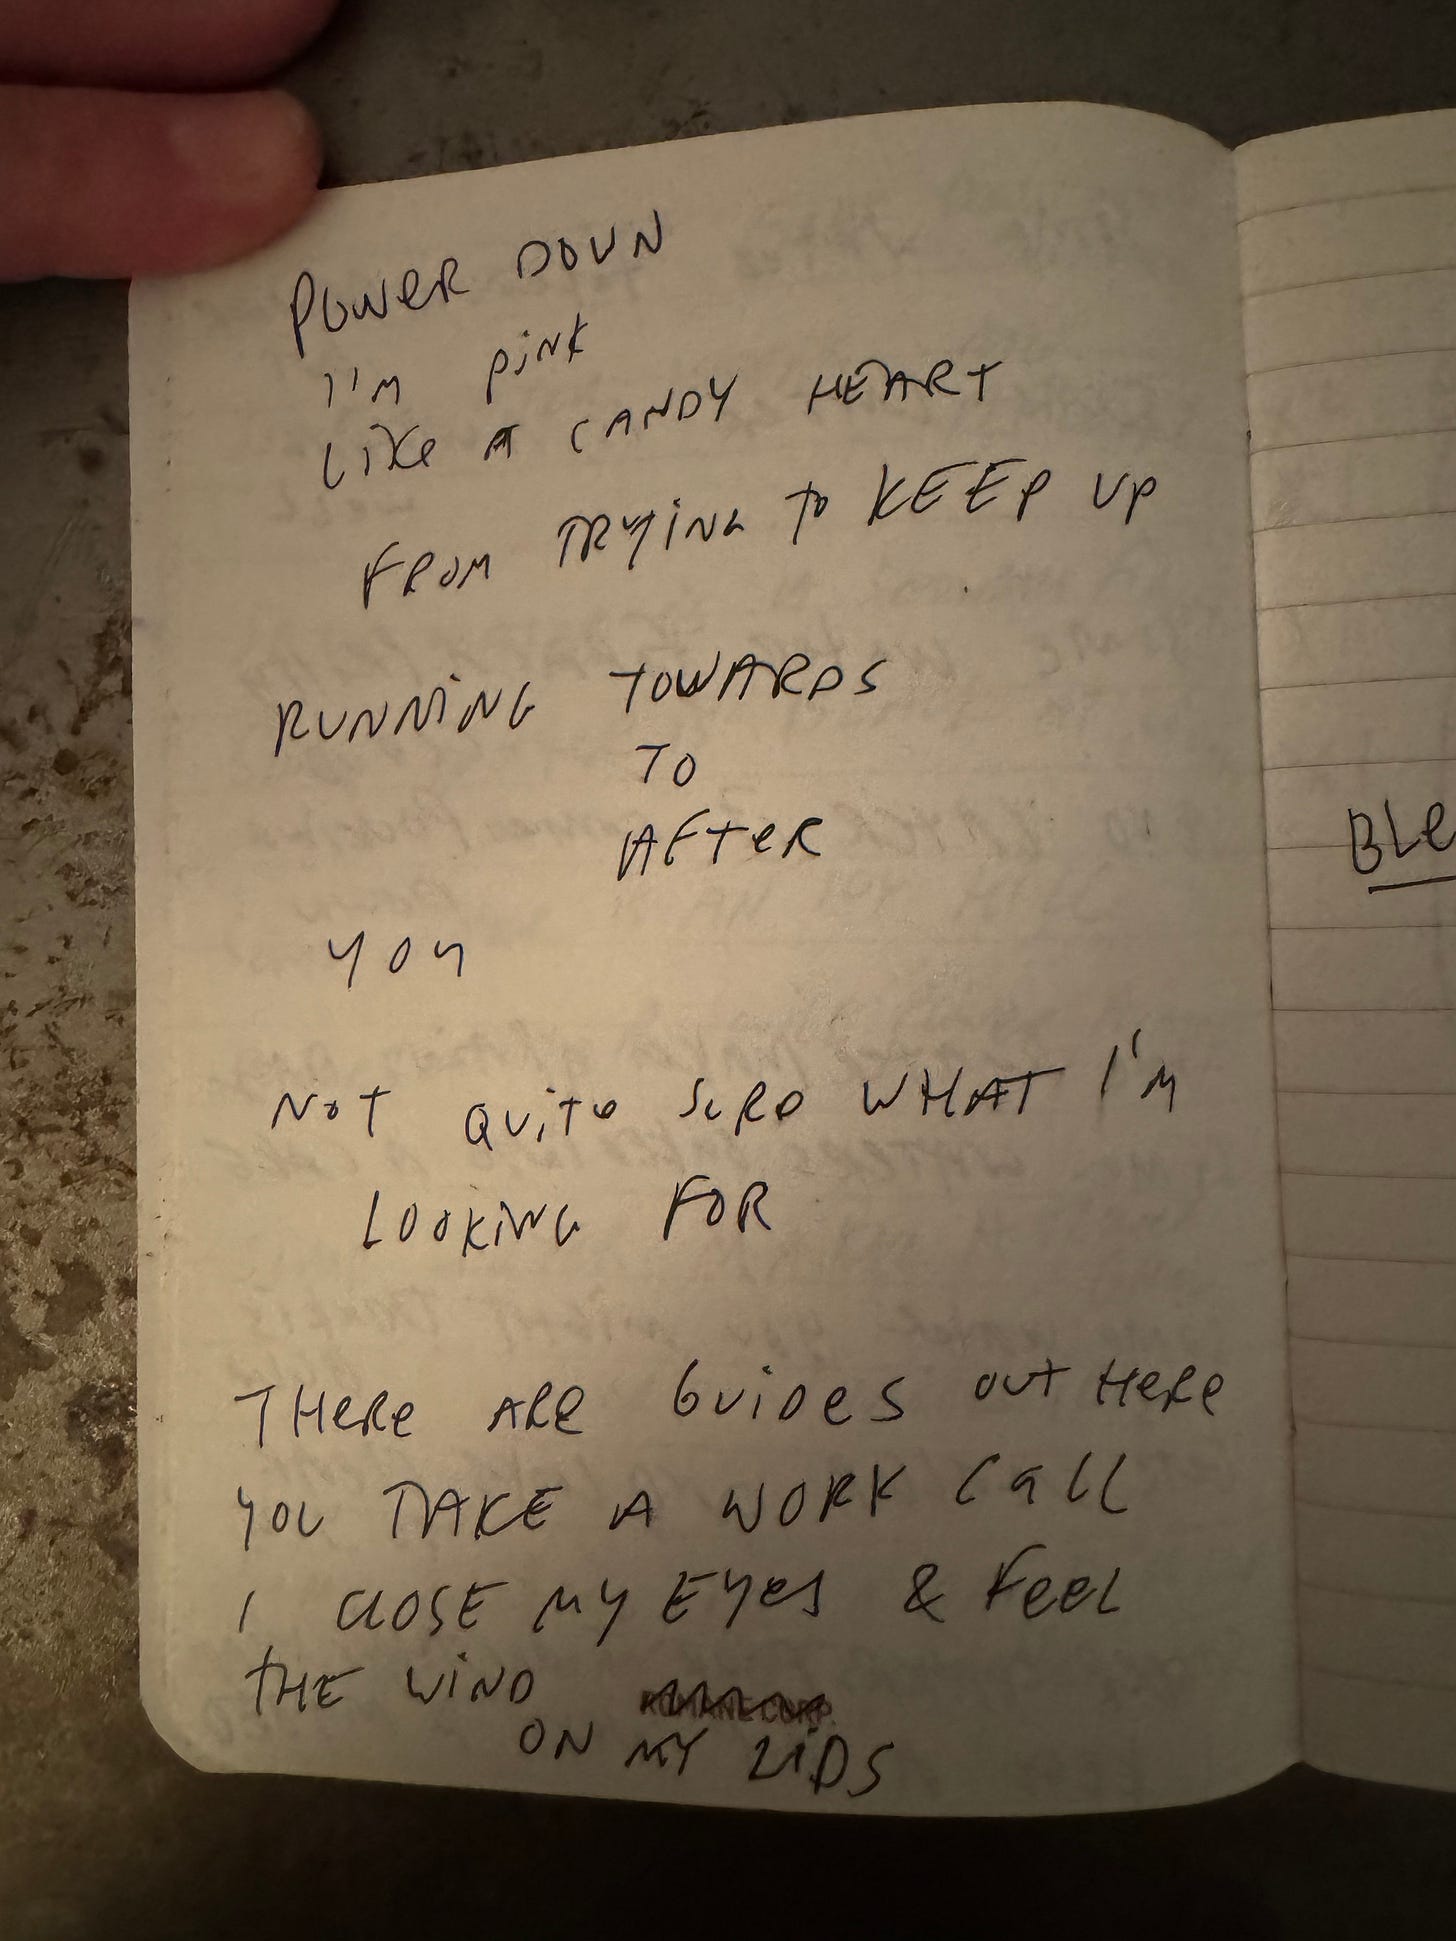 POWER DOWN
I'M PiNK
LiKe A CANDY HEART
FROM TRYiNG to KEEP UP
RUNNiNG TOWARDS
TO
AFTeR
YOU
Not QUite SURe WHAT I'M
LOOKiNG FOR
THeRe ARe GUiDeS OUT HeRe
YOU TAKE A WORK CaLL
I CLOSE MY EYeS & FeeL
tHE WiND
ON MY LiDS
BLe